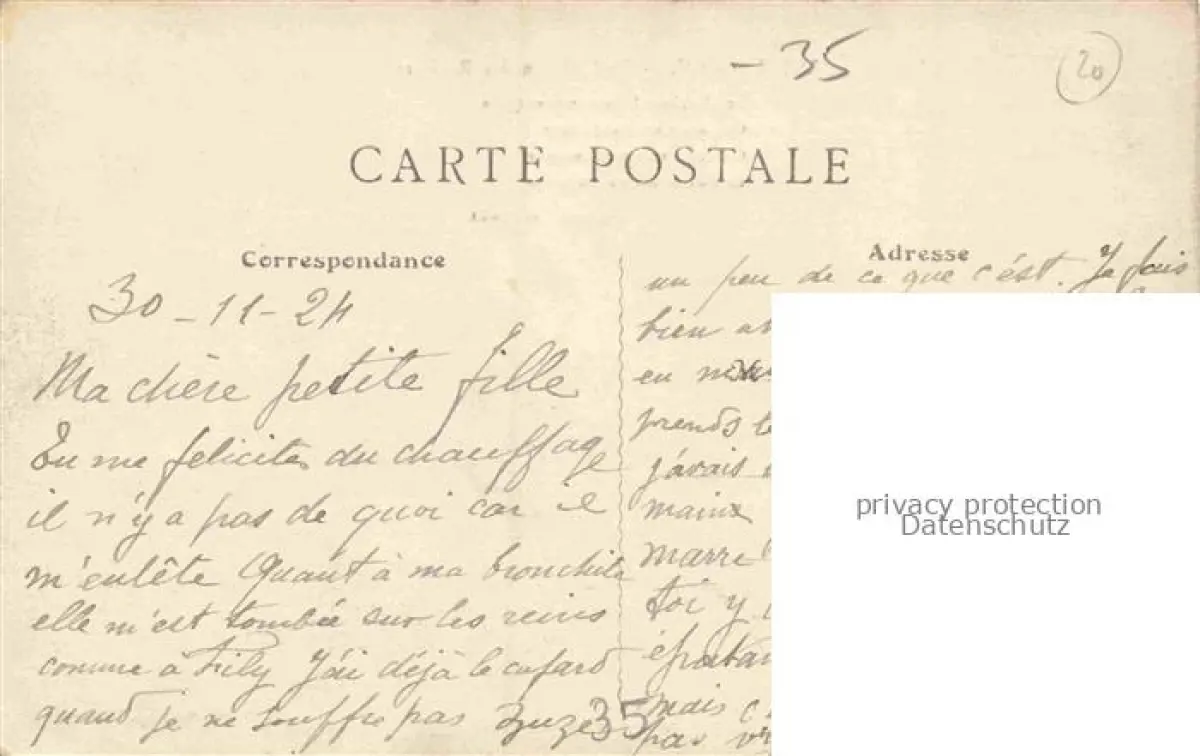 -35
20
CARTE POSTALE
Correspondance
30-11-24
Ma chère petite fille
Tu me felicites du chauffage
il n'y a pas de quoi car il
m'entête Quant à ma bronchite
elle m'est tombée sur les reins
comme à J'ai déjà le cafard
quand je ne souffre pas juge
35
Adresse
un peu de ce que c'est. Je fais
bien
en
prends le
j'avais
mains
marre
toi y
mais c
pas
privacy protection
Datenschutz